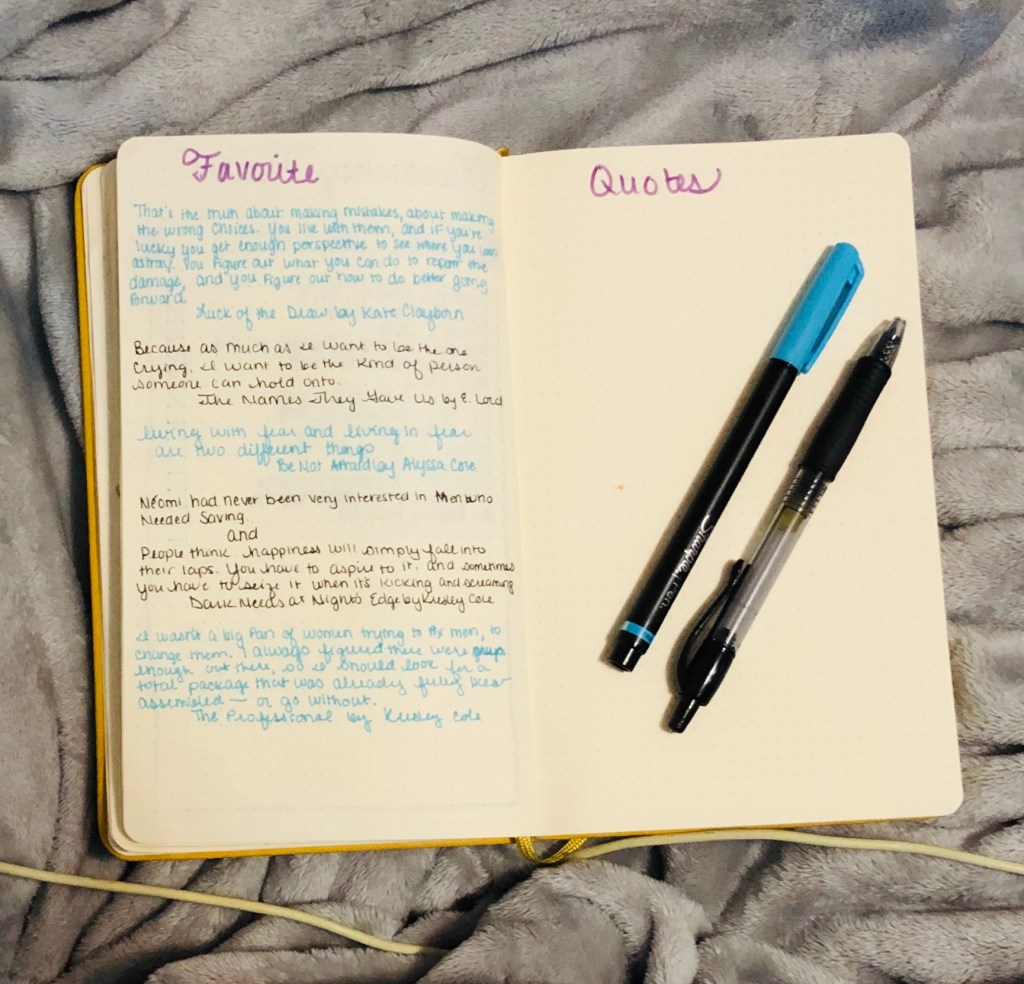 Favorite
Quotes
That's the truth about making mistakes, about making
the wrong choices. You live with them, and if you're
lucky you get enough perspective to see where you went
astray. You figure out what you can do to repair the
damage, and you figure out how to do better going
forward.
Luck of the Draw by Kate Clayborn
Because as much as I want to be the one
crying. I want to be the kind of person
someone can hold onto.
The Names They Gave Us by E. Lord
living with fear and living in fear
are two different things
Be Not Afraid by Alyssa Cole
Néomi had never been very interested in Men who
Needed Saving.
and
People think happiness will simply fall into
their laps. You have to aspire to it. and sometimes
you have to seize it when it's kicking and screaming
Dark Needs at Night's Edge by Kresley Cole
I wasn't a big fan of women trying to fix men, to
change them. I always figured there were guys
enough out there, so I should look for a
total package that was already fully
assembled — or go without.
The Professional by Kresley Cole
Sharpie Pen